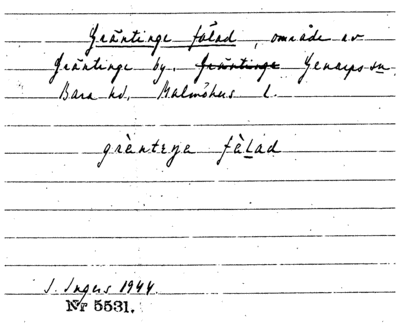 Gräntinge fälad, område av
Gräntinge by, Gräntinge Genarps sn
Bara hd, Malmöhus l.
grànteŋa fàlad
I. Ingers 1944
Nr 5531.